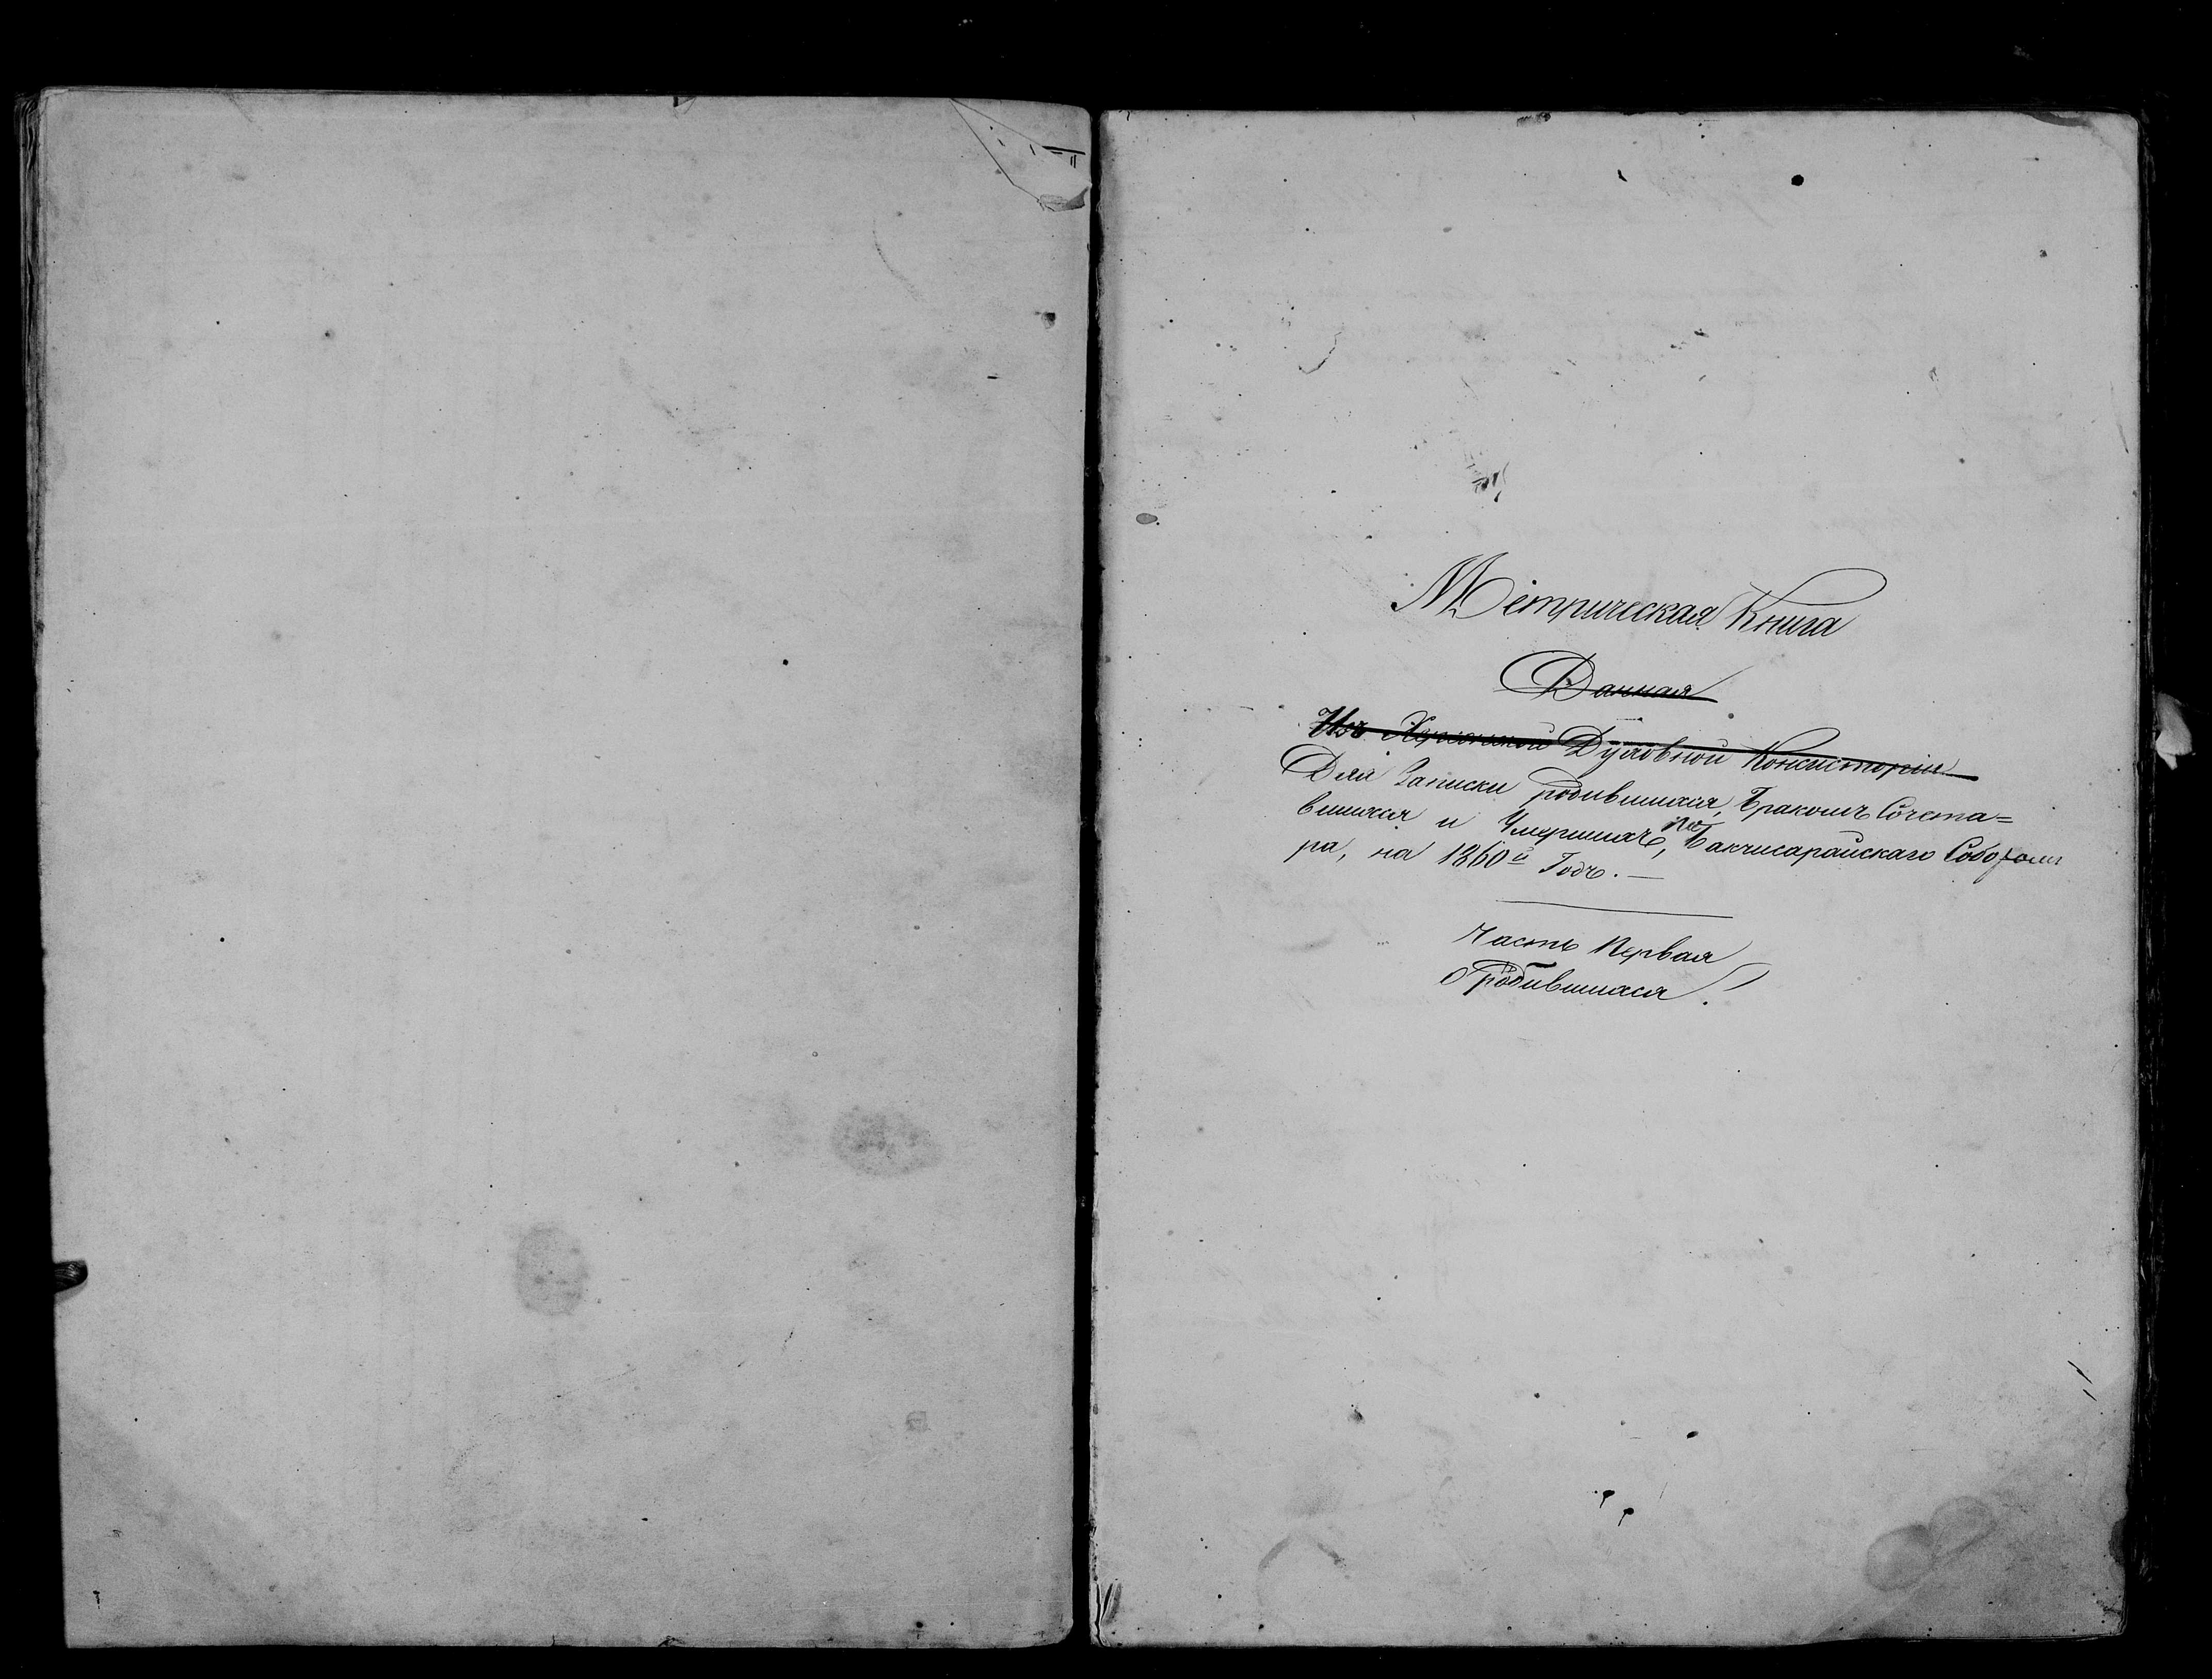 Метрическая Книга
Данная
Изъ Херсонской Духовной Консисторіи
Для Записки родившихся, Бракомъ Сочета=
вшихся и Умершихъ, по Бакчисарайскаго Собо
ра, на 1860й Годъ.—
Часть Первая
О родившихся.